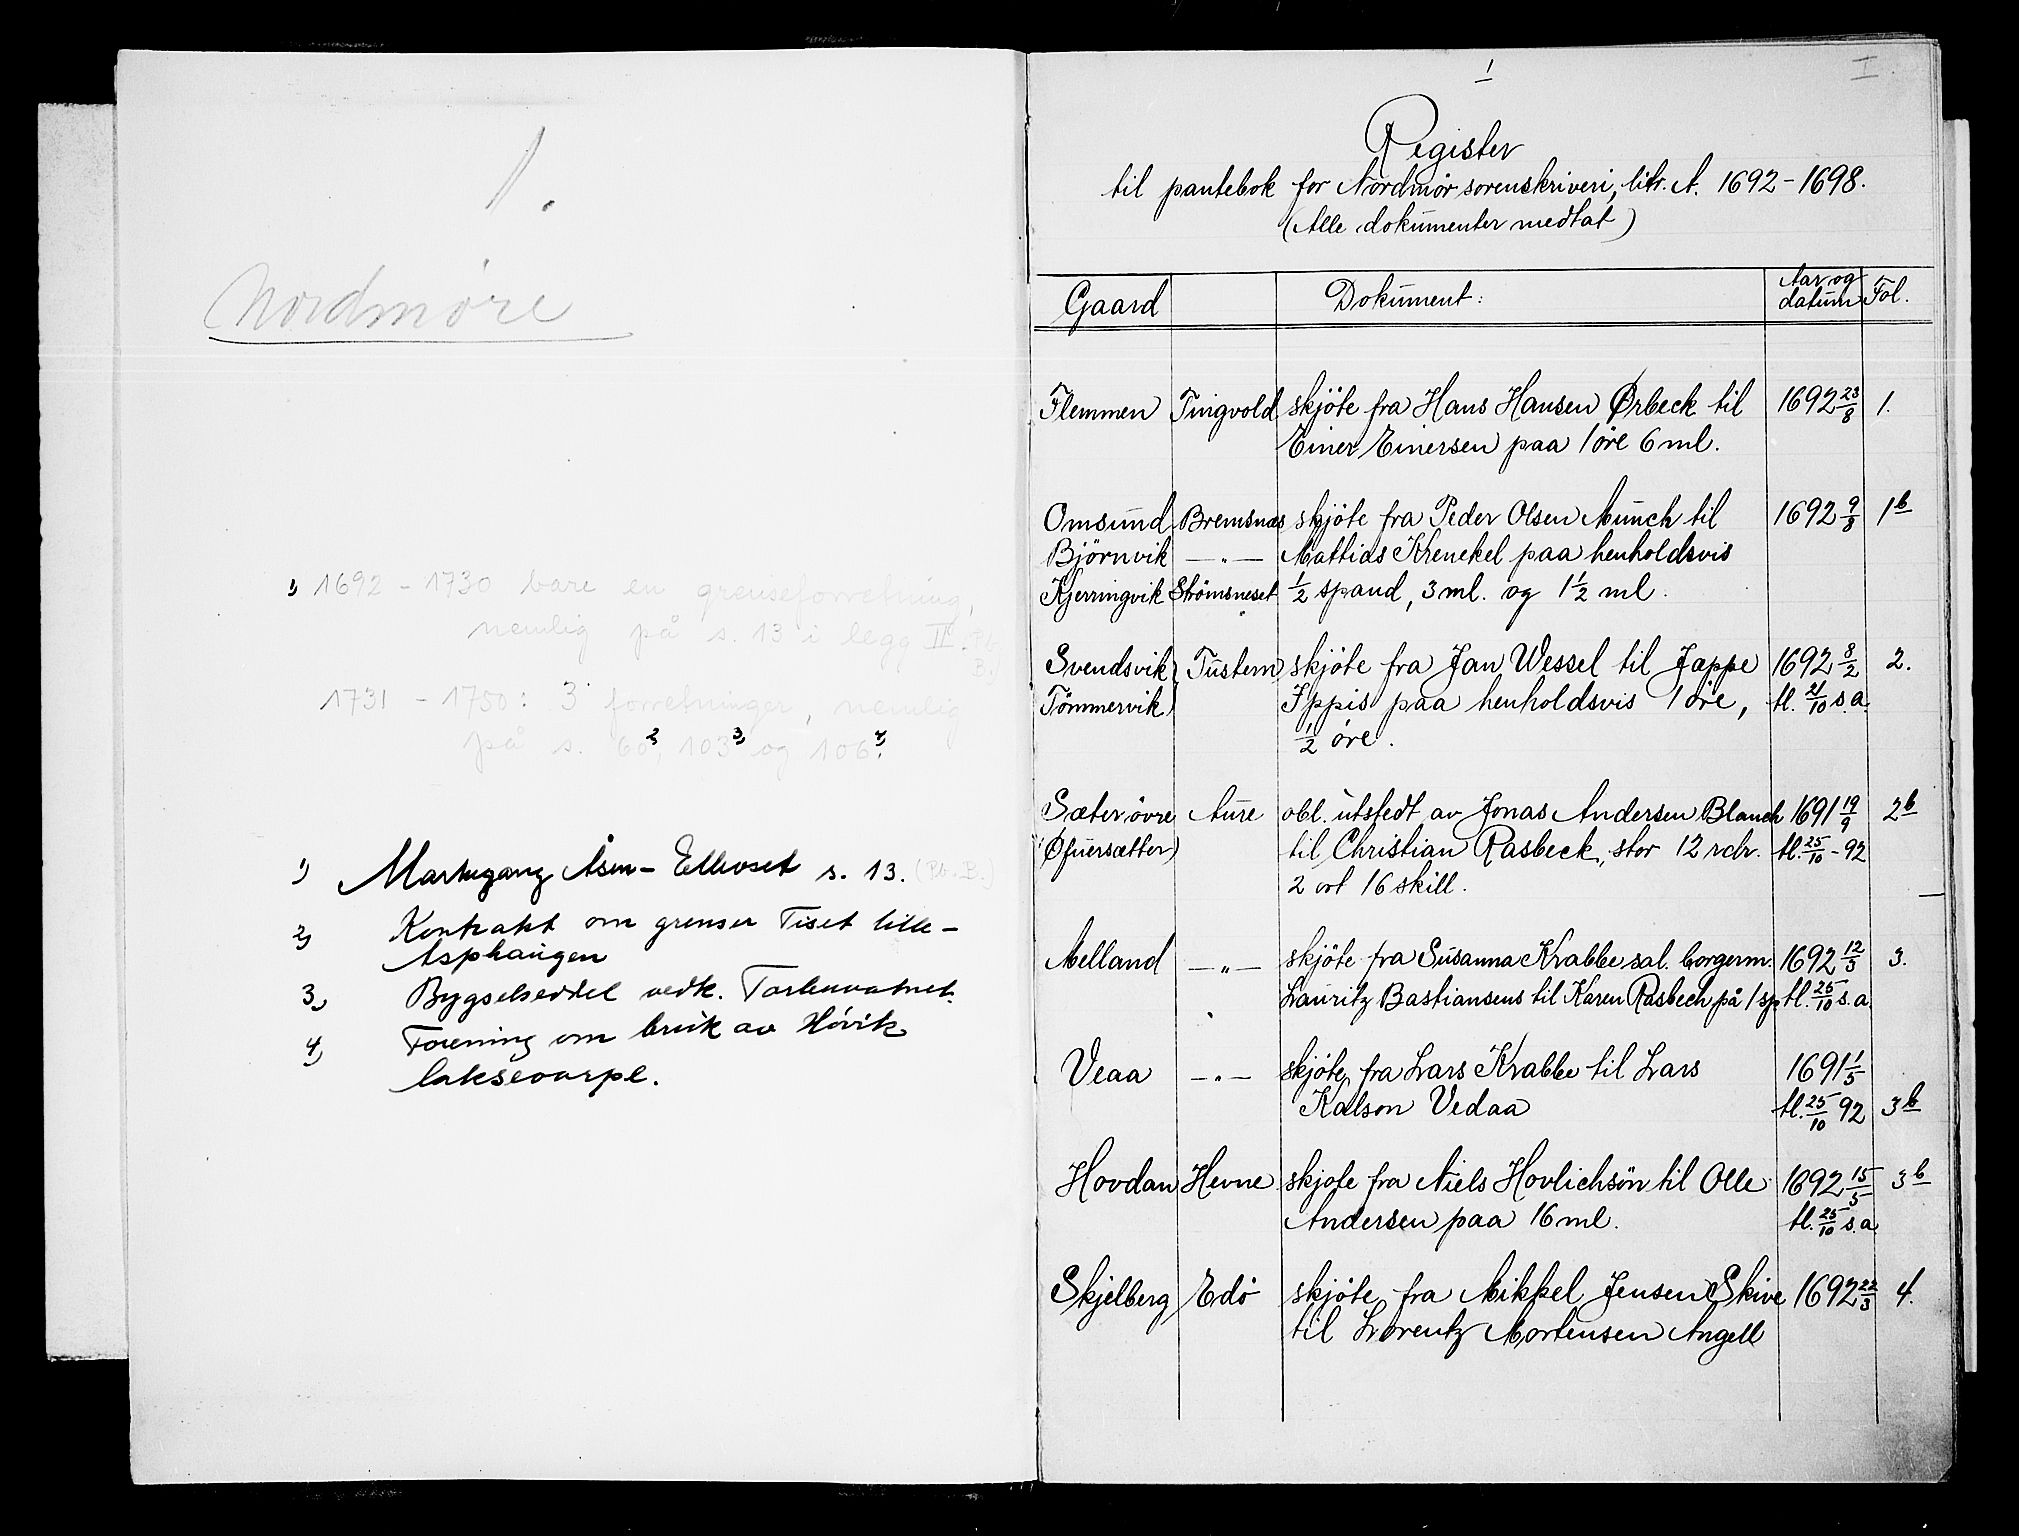 1.
Nordmøre
1) 1692 - 1730 bare en grenseforretning,
nemlig på s. 13 i legg II c. Pb.
B.)
1731 - 1750: 3 forretninger, nemlig
på s. 60 2), 103 3) og 106 4).
1) Markegang Åsen - Ellevset s. 13. (Pb. B.)
2) Kontrakt om grenser Tiset lille -
Asphaugen
3) Bygselseddel vedk. Torlenvatnet.
4) Forening om bruk av Høvik
laksevarpe.
1
I
Register
til pantebok for Nordmør sorenskriveri, litr. A. 1692 - 1698.
(Alle dokumenter medtat)
Gaard Dokument: Aar og datum Fol.
Flemmen Tingvold skjöte fra Hans Hansen Ørbeck til 1692 23/8 1.
Einer Einersen paa 1 öre 6 ml.
Omsund Bremsnæs skjöte fra Peder Olsen Munch til 1692 9/8 1 b
Björnvik —"— Mattias Krenekel paa henholdsvis
Kjerringvik Strömsneset 1/2 spand, 3 ml. og 1 1/2 ml.
Svendsvik } Tustern skjöte fra Jan Wessel til Jappe 1692 8/2 2.
Tömmervik } Ippis paa henholdsvis 1 öre, tl. 21/10 s.a.
1/2 öre.
Sæter övre Aure obl. utstedt av Jonas Andersen Blanch 1691 19/9 2 b
(Øfuersætter) til Christian Rasbeck, stor 12 rdr. tl. 25/10 - 92
2 ort 16 skill.
Melland —"— skjöte fra Susanna Krabbe sal. borgerm. 1692 12/3 3.
Lauritz Bastiansens til Karen Rasbech på 1 sp. tl. 25/10 s.a.
Veaa —"— skjöte fra Lars Krabbe til Lars 1691 1/5
Kalson Vedaa tl. 25/10 92 3 b
Hovdan Hevne skjöte fra Niels Hovlichsön til Olle 1692 15/5 3 b
Andersen paa 16 ml. tl. 25/10 s.a
Skjelberg Edö skjöte fra Mikkel Jensen Skive 1692 22/3 4.
til Lorentz Mortensen Angell